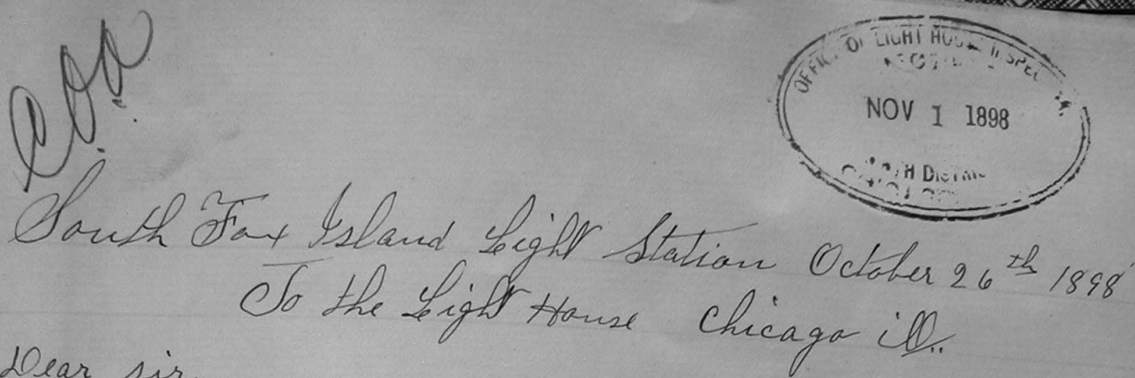 OFFICE OF LIGHT HOUSE INSPECTOR
NOV 1 1898
DISTRICT
South Fox Island Light Station October 26th 1898
To the Light House Chicago ill.
Dear sir.